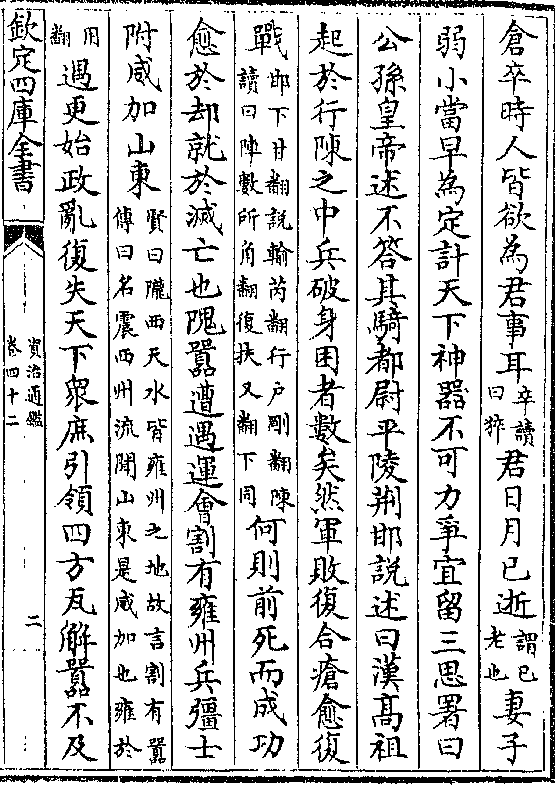 倉卒時人皆欲為君事耳卒讀曰猝君日月已逝謂已老也妻子
弱小當早為定計天下神器不可力爭宜留三思署曰
公孫皇帝述不答其騎都尉平陵荆邯説述曰漢髙祖
起於行陳之中兵破身困者數矣然軍敗復合瘡愈復
戰邯下甘翻説輸芮翻行户剛翻陳讀曰陣數所角翻復扶又翻下同何則前死而成功
愈於却就於滅亡也隗囂遭遇運會割有雍州兵彊士
附威加山東賢曰隴西天水皆雍州之地故言割有囂傳曰名震西州流聞山東是威加也雍於
用翻遇更始政亂復失天下衆庶引領四方瓦解囂不及
欽定四庫全書
資治通鑑
卷四十二
二